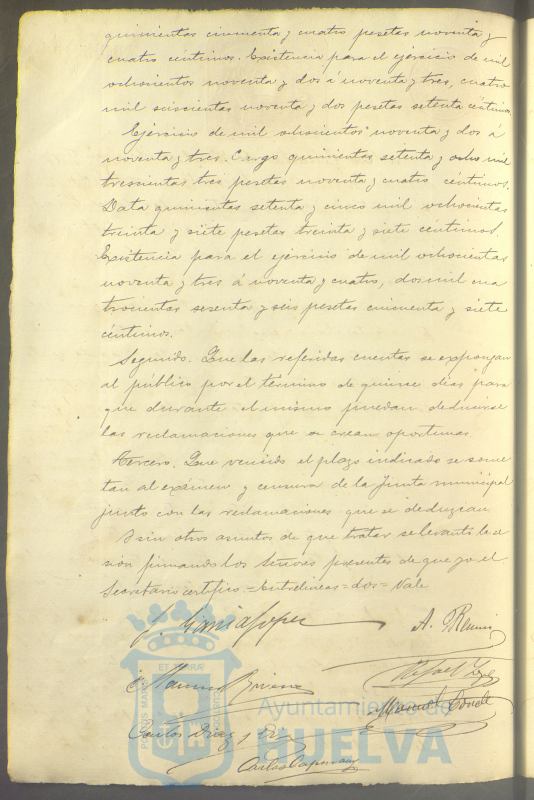 quinientas cincuenta y cuatro pesetas noventa y
cuatro céntimos. Existencia para el ejercicio de mil
ochocientos noventa y dos á noventa y tres, cuatro
mil seiscientas noventa y dos pesetas setenta céntimos.
Ejercicio de mil ochocientos noventa y dos á
noventa y tres. Cargo quinientas setenta y ocho mil
trescientas tres pesetas noventa y cuatro céntimos.
Data quinientas setenta y cinco mil ochocientas
treinta y siete pesetas treinta y siete céntimos.
Existencia para el ejercicio de mil ochocientas
noventa y tres á noventa y cuatro, dos mil cua
trocientas sesenta y seis pesetas cincuenta y siete
céntimos.
Segundo. Que las referidas cuentas se expongan
al público por el término de quinse dias para
que durante el mismo puedan deducirse
las reclamaciones que se crean oportunas.
Tercero. Que vencido el plazo indicado se some
tan al exámen y censura de la Junta municipal
junto con las reclamaciones que se deduzcan
Y sin otros asuntos de que tratar se levantó la se
sion firmando los Señores presentes de que yo el
Secretario certifico = Entrelineas = dos = Vale
J. Garcia Lopez
A.
Rafael
Manuel
Manuel
Carlos Diaz y
Carlos
Ayuntamiento de
HUELVA